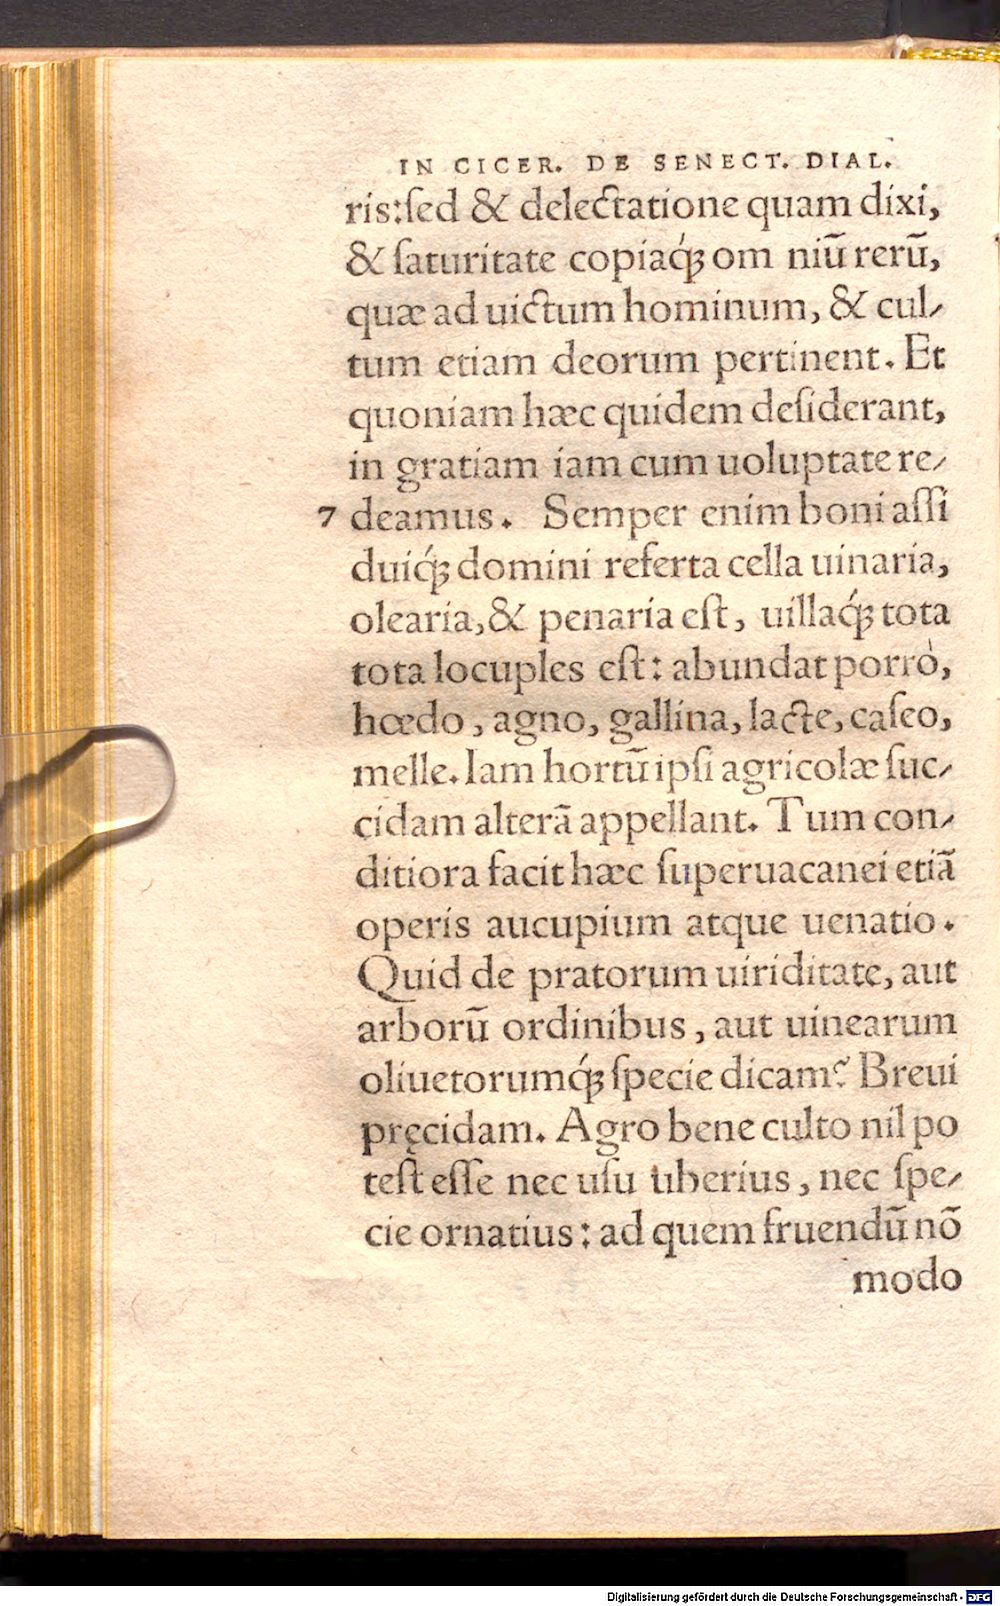 IN CICER. DE SENECT. DIAL.
ris:ſed & delectatione quam dixi,
& ſaturitate copiaq́ꝫ om niū rerū,
quæ ad uictum hominum, & cul⸗
tum etiam deorum pertinent. Et
quoniam hæc quidem deſiderant,
in gratiam iam cum uoluptate re⸗
7 deamus. Semper enim boni aſſi
duiq́ꝫ domini referta cella uinaria,
olearia, & penaria eſt, uillaq́ꝫ tota
tota locuples eſt: abundat porrò,
hœdo, agno, gallina, lacte, caſeo,
melle. Iam hortū ipſi agricolæ ſuc⸗
cidam alterā appellant. Tum con⸗
ditiora facit hæc ſuperuacanei etiā
operis aucupium atque uenatio.
Quid de pratorum uiriditate, aut
arborū ordinibus, aut uinearum
oliuetorumq́ꝫ ſpecie dicam? Breui
pręcidam. Agro bene culto nil po
teſt eſſe nec uſu uberius, nec ſpe⸗
cie ornatius: ad quem fruendū nō
modo
Digitalisierung gefördert durch die Deutsche Forschungsgemeinschaft - DFG